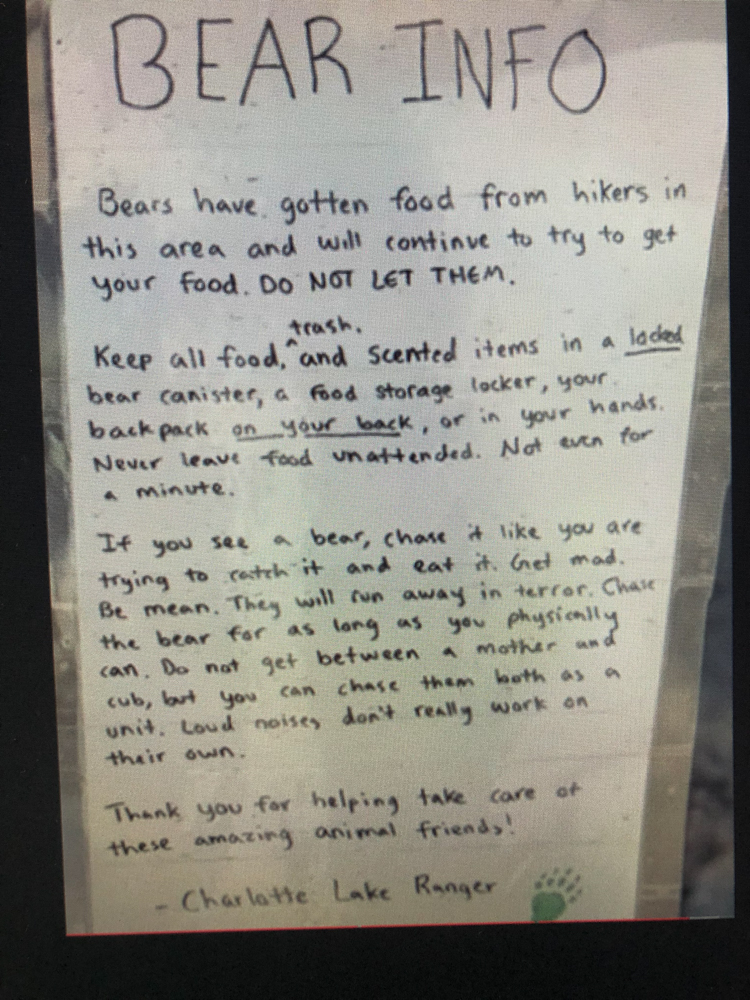 BEAR INFO
Bears have gotten food from hikers in
this area and will continue to try to get
your food. DO NOT LET THEM.
trash,
Keep all food, ^ and scented items in a locked
bear canister, a food storage locker, your
backpack on your back, or in your hands.
Never leave food unattended. Not even for
a minute.
If you see a bear, chase it like you are
trying to catch it and eat it. Get mad.
Be mean. They will run away in terror. Chase
the bear for as long as you physically
can. Do not get between a mother and
cub, but you can chase them both as a
unit. Loud noises don't really work on
their own.
Thank you for helping take care of
these amazing animal friends!
- Charlotte Lake Ranger